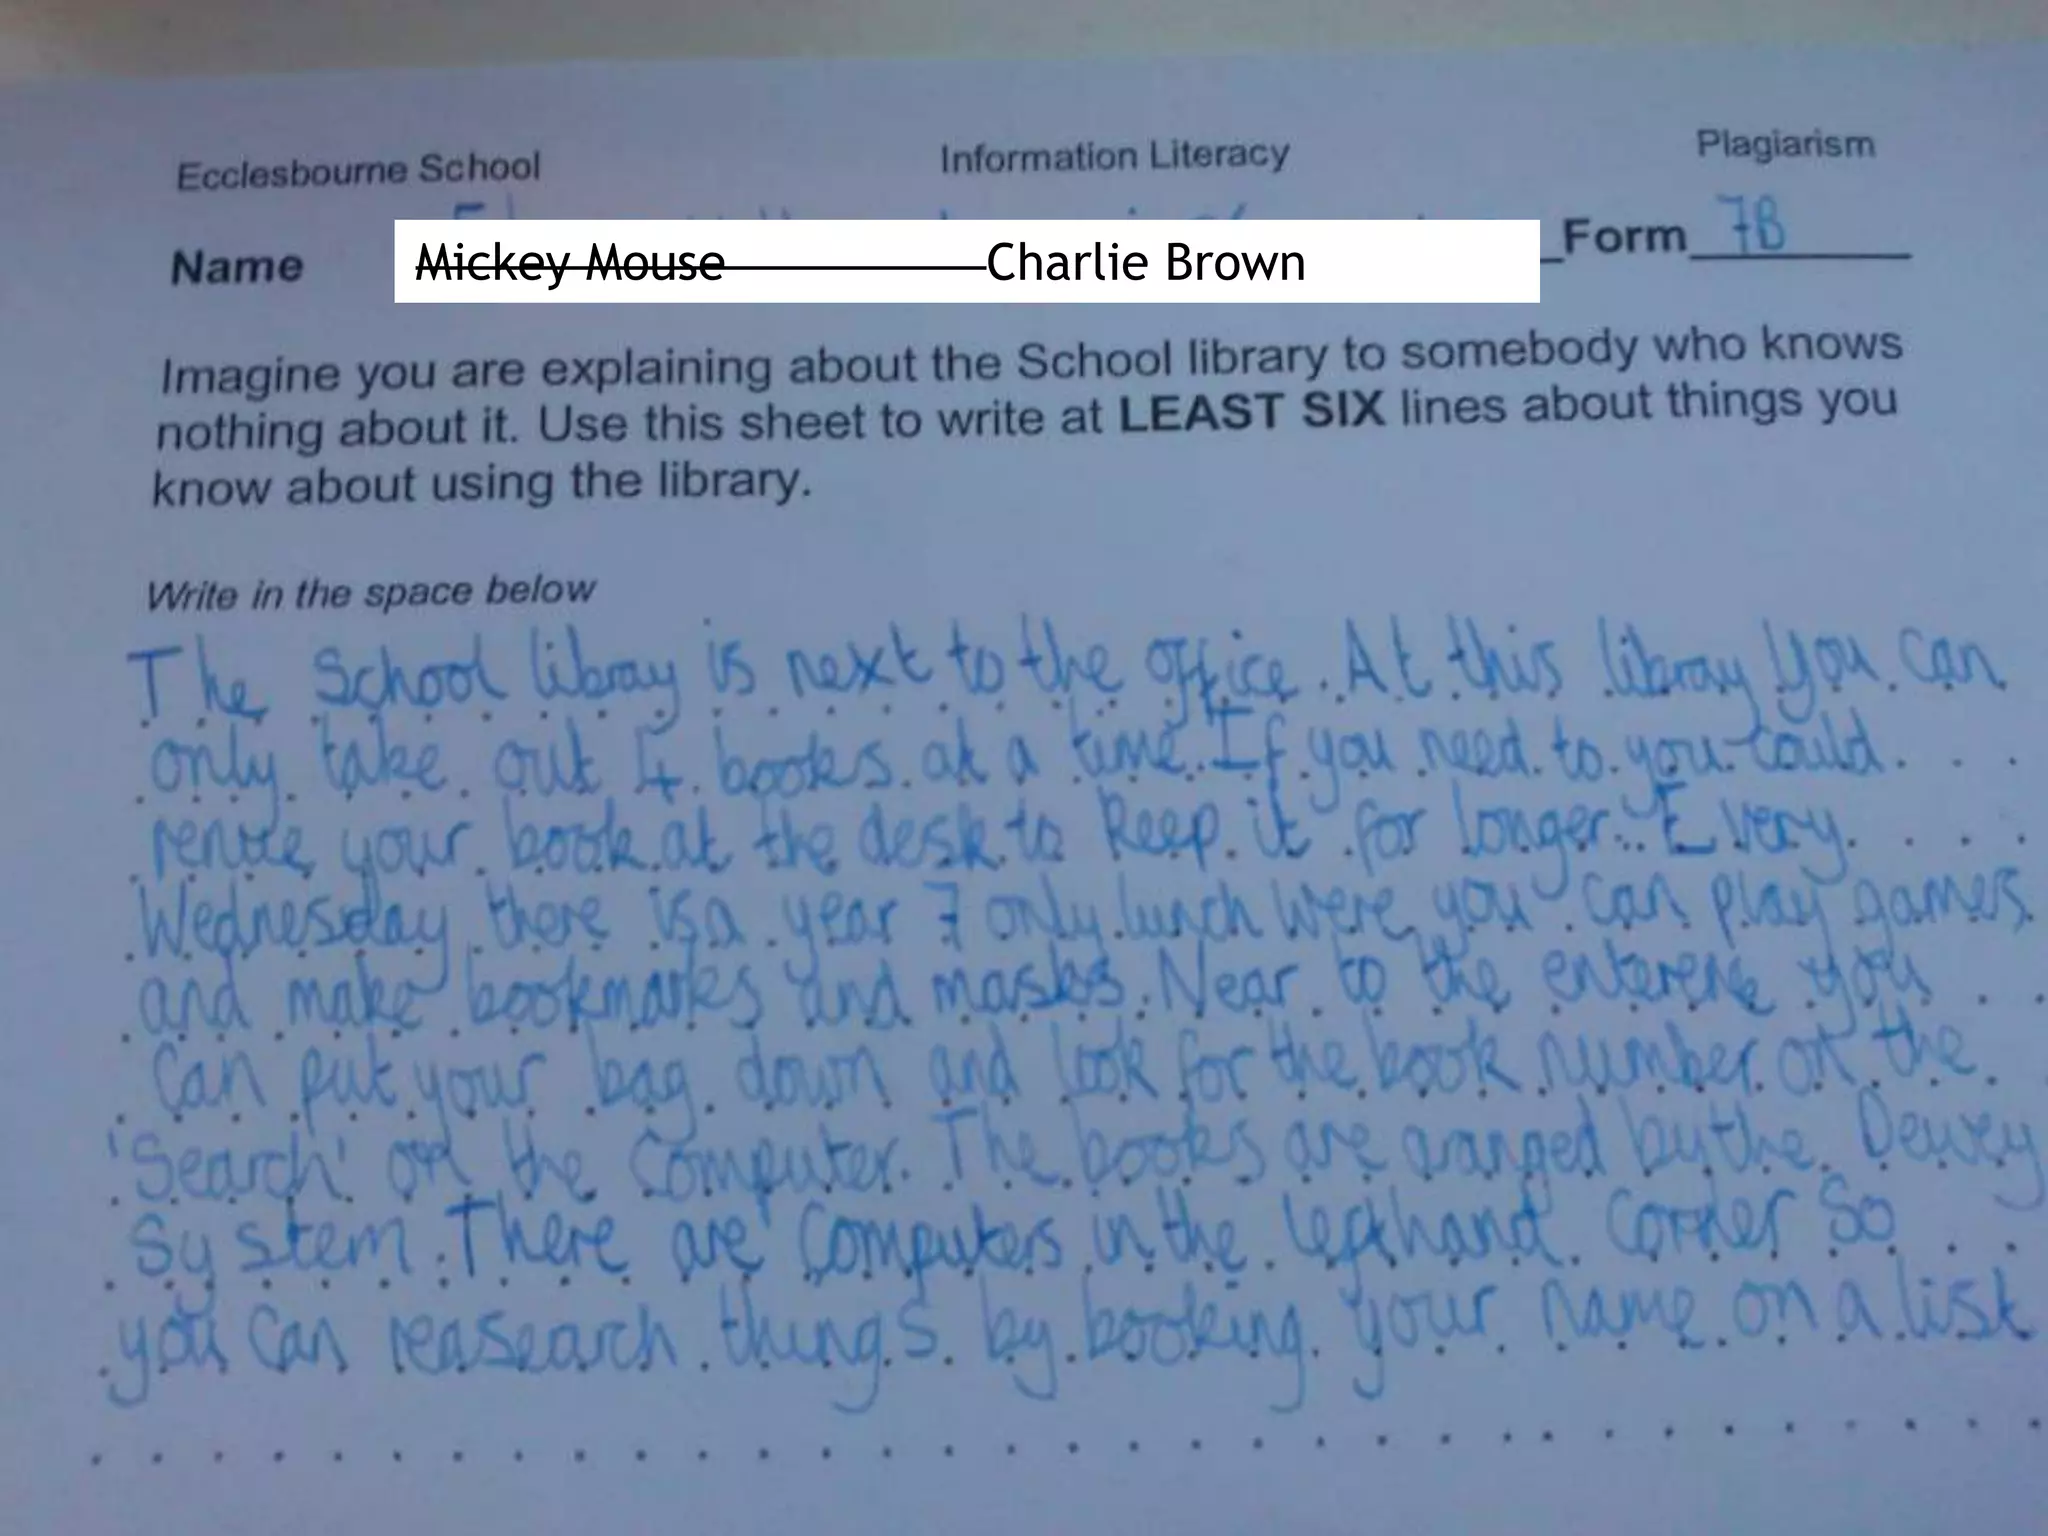 Ecclesbourne School Information Literacy Plagiarism
Name Mickey Mouse Charlie Brown Form 7B
Imagine you are explaining about the School library to somebody who knows
nothing about it. Use this sheet to write at LEAST SIX lines about things you
know about using the library.
Write in the space below
The School libray is next to the office. At this libray you can
only take out 4 books at a time. If you need to you could
your book at the desk to keep it for longer. Every
Wednesday there is a year 7 only lunch were you can play games
and make bookmarks and masks. Near to the you
can put your bag down and look for the book number on the
'Search' on the computer. The books are aranged by the Dewey
System. There are computers in the lefthand corner so
you can reasearch things by booking your name on a list